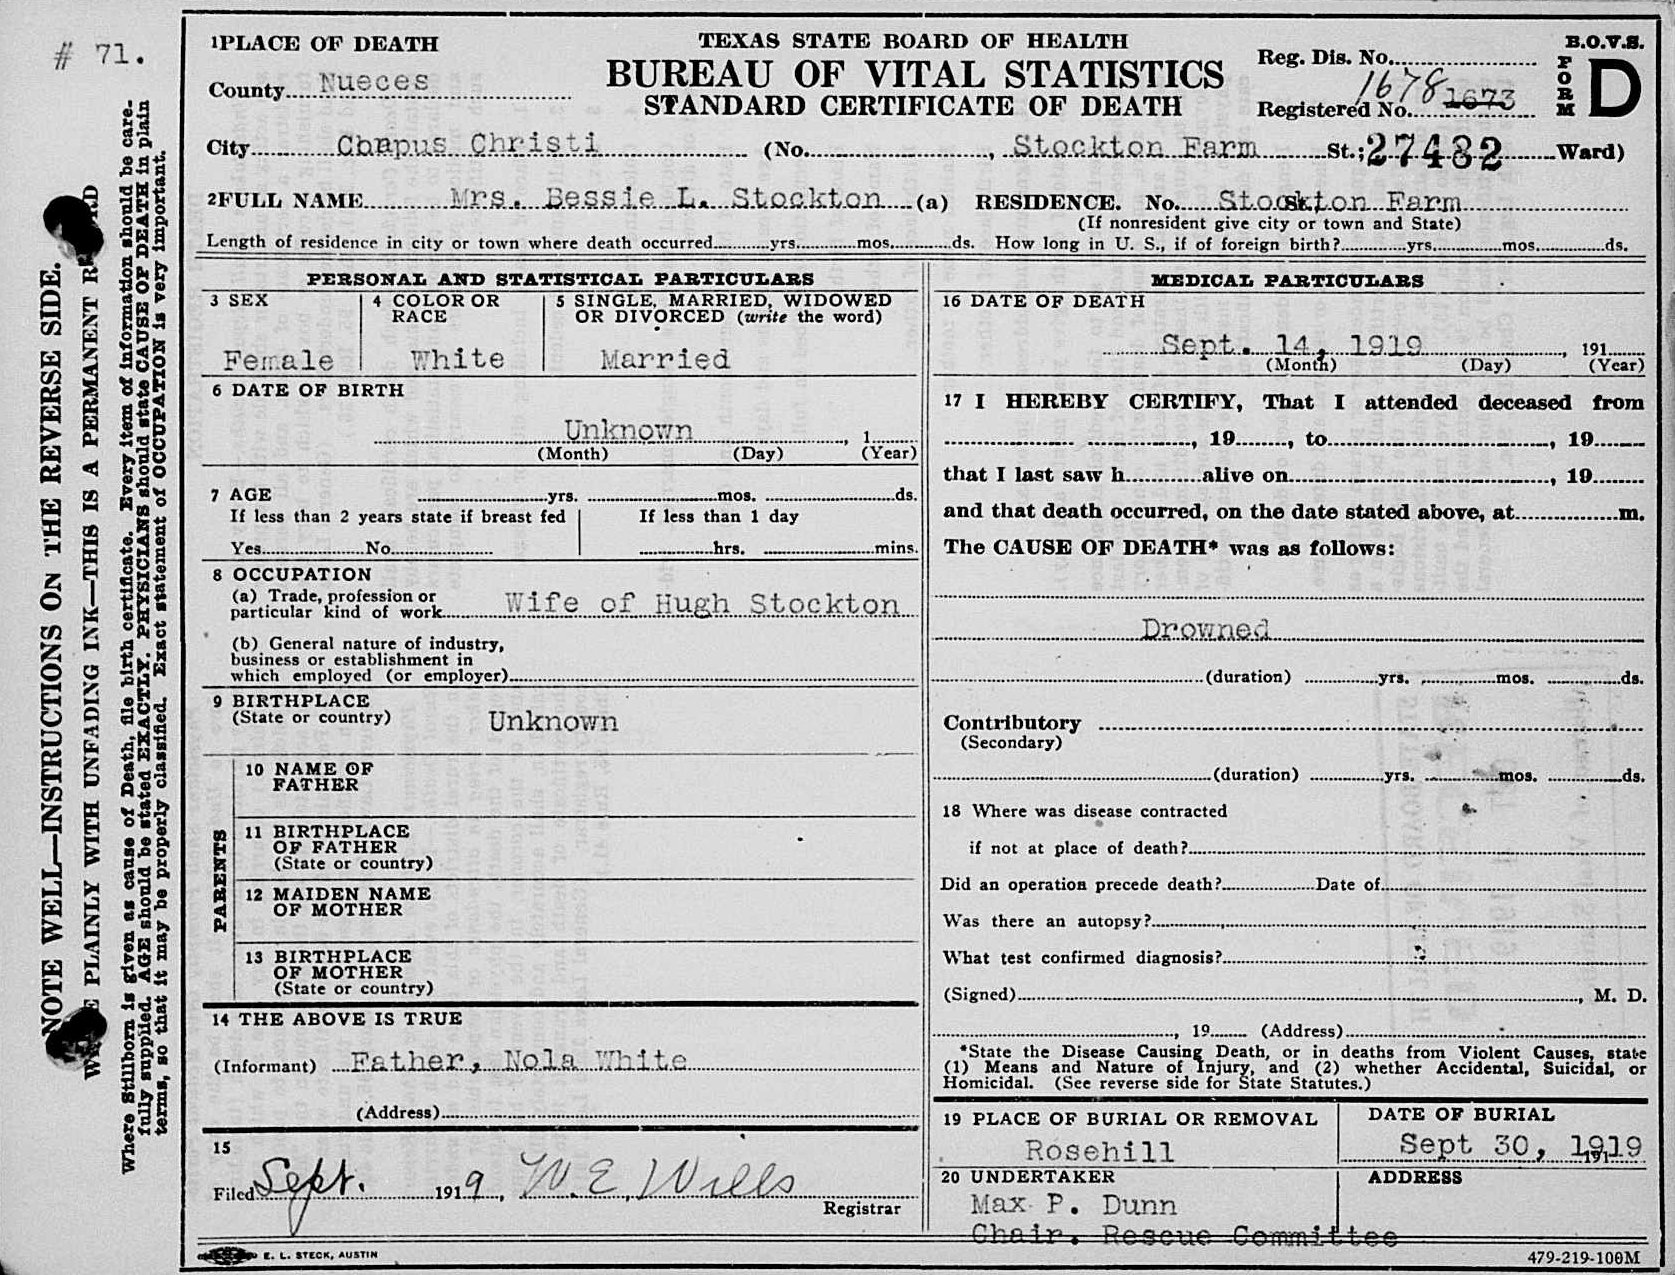 # 71.
NOTE WELL—INSTRUCTIONS ON THE REVERSE SIDE.
PLAINLY WITH UNFADING INK—THIS IS A PERMANENT
Where Stillborn is given as cause of Death, file birth certificate. Every item of information should be care-
fully supplied. AGE should be stated EXACTLY. PHYSICIANS should state CAUSE OF DEATH in plain
terms, so that it may be properly classified. Exact statement of OCCUPATION is very important.
1 PLACE OF DEATH
County Nueces
TEXAS STATE BOARD OF HEALTH
BUREAU OF VITAL STATISTICS
STANDARD CERTIFICATE OF DEATH
Reg. Dis. No.
1678
Registered No. 1673
B.O.V.S.
FORM D
City Chapus Christi (No. , Stockton Farm St.; 27482 Ward)
2 FULL NAME Mrs. Bessie L. Stockton (a) RESIDENCE. No. Stockton Farm St.,
(If nonresident give city or town and State)
Length of residence in city or town where death occurred yrs. mos. ds. How long in U. S., if of foreign birth? yrs. mos. ds.
PERSONAL AND STATISTICAL PARTICULARS
3 SEX
Female
4 COLOR OR
RACE
White
5 SINGLE, MARRIED, WIDOWED
OR DIVORCED (write the word)
Married
6 DATE OF BIRTH
Unknown , 1
(Month) (Day) (Year)
7 AGE yrs. mos. ds.
If less than 2 years state if breast fed
Yes No
If less than 1 day
hrs. mins.
8 OCCUPATION
(a) Trade, profession or
particular kind of work Wife of Hugh Stockton
(b) General nature of industry,
business or establishment in
which employed (or employer)
9 BIRTHPLACE
(State or country) Unknown
PARENTS
10 NAME OF
FATHER
11 BIRTHPLACE
OF FATHER
(State or country)
12 MAIDEN NAME
OF MOTHER
13 BIRTHPLACE
OF MOTHER
(State or country)
14 THE ABOVE IS TRUE
(Informant) Father, Nola White
(Address)
15
Filed Sept. 1919, W. E. Wills
Registrar
MEDICAL PARTICULARS
16 DATE OF DEATH
Sept. 14, 1919 , 191
(Month) (Day) (Year)
17 I HEREBY CERTIFY, That I attended deceased from
, 19 , to , 19
that I last saw h alive on , 19
and that death occurred, on the date stated above, at m.
The CAUSE OF DEATH* was as follows:
Drowned
(duration) yrs. mos. ds.
Contributory
(Secondary)
(duration) yrs. mos. ds.
18 Where was disease contracted
if not at place of death?
Did an operation precede death? Date of
Was there an autopsy?
What test confirmed diagnosis?
(Signed) , M. D.
, 19 (Address)
*State the Disease Causing Death, or in deaths from Violent Causes, state
(1) Means and Nature of Injury, and (2) whether Accidental, Suicidal, or
Homicidal. (See reverse side for State Statutes.)
19 PLACE OF BURIAL OR REMOVAL
Rosehill
DATE OF BURIAL
Sept 30, 1919 191
20 UNDERTAKER
Max P. Dunn
Chair. Rescue Committee
ADDRESS
E. L. STECK, AUSTIN
479-219-100M